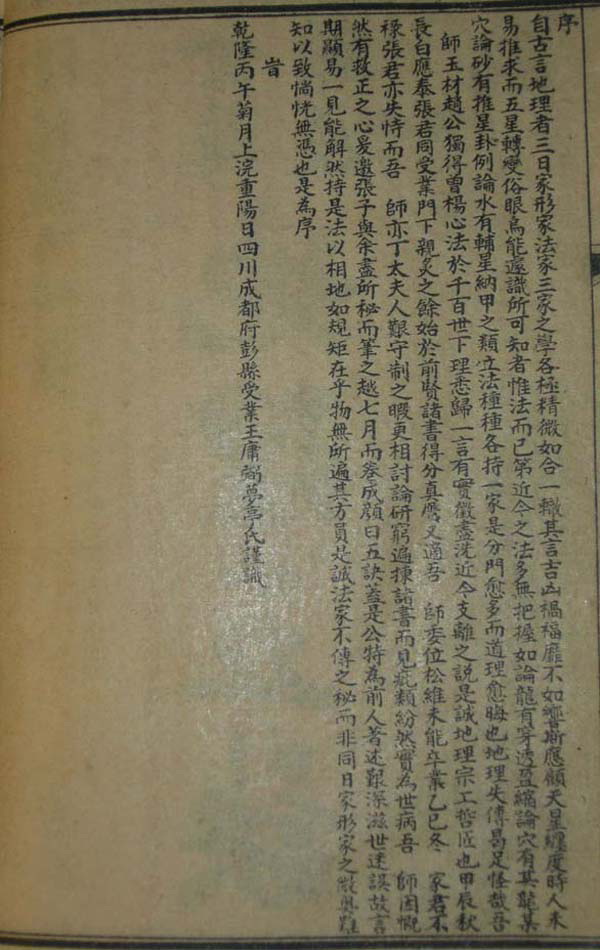 序
自古言地理者三日家形家法家三家之學各極精微如合一轍其言吉凶禍福靡不如響斯應顧天星纏度時人未
易推求而五星轉變俗眼烏能遽識所可知者惟法而已第近今之法多無把握如論龍有穿透盈縮論穴有其龍某
穴論砂有推星卦例論水有輔星納甲之類立法種種各持一家是分門愈多而道理愈晦也地理失傳曷足怪哉吾
師玉材趙公獨得曾楊心法於千百世下理悉歸一言有實徵盡洗近今支離之說是誠地理宗工哲匠也甲辰秋
長白應泰張君同受業門下親炙之餘始於前賢諸書得分真贋又適吾 師委位松維未能卒業乙巳冬 家君不
祿張君亦失恃而吾 師亦丁太夫人艱守制之暇更相討論研窮遍揀諸書而見疵纇紛然實為世病吾 師因慨
然有救正之心爰邀張子與余盡所秘而筆之越七月而卷成顏曰五訣蓋是公特為前人著述艱深滋世迷誤故言
期顯易一見能解然持是法以相地如規矩在乎物無所遁其方員是誠法家不傳之秘而非同日家形家之微奧難
知以致惝恍無憑也是為序
旹
乾隆丙午菊月上浣重陽日四川成都府彭縣受業王庸弼夢亭氏謹識